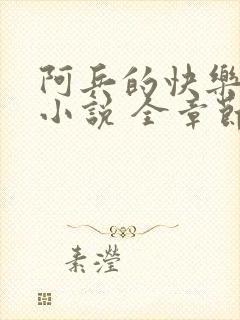 阿兵的快樂
小說 全章節
素瀅